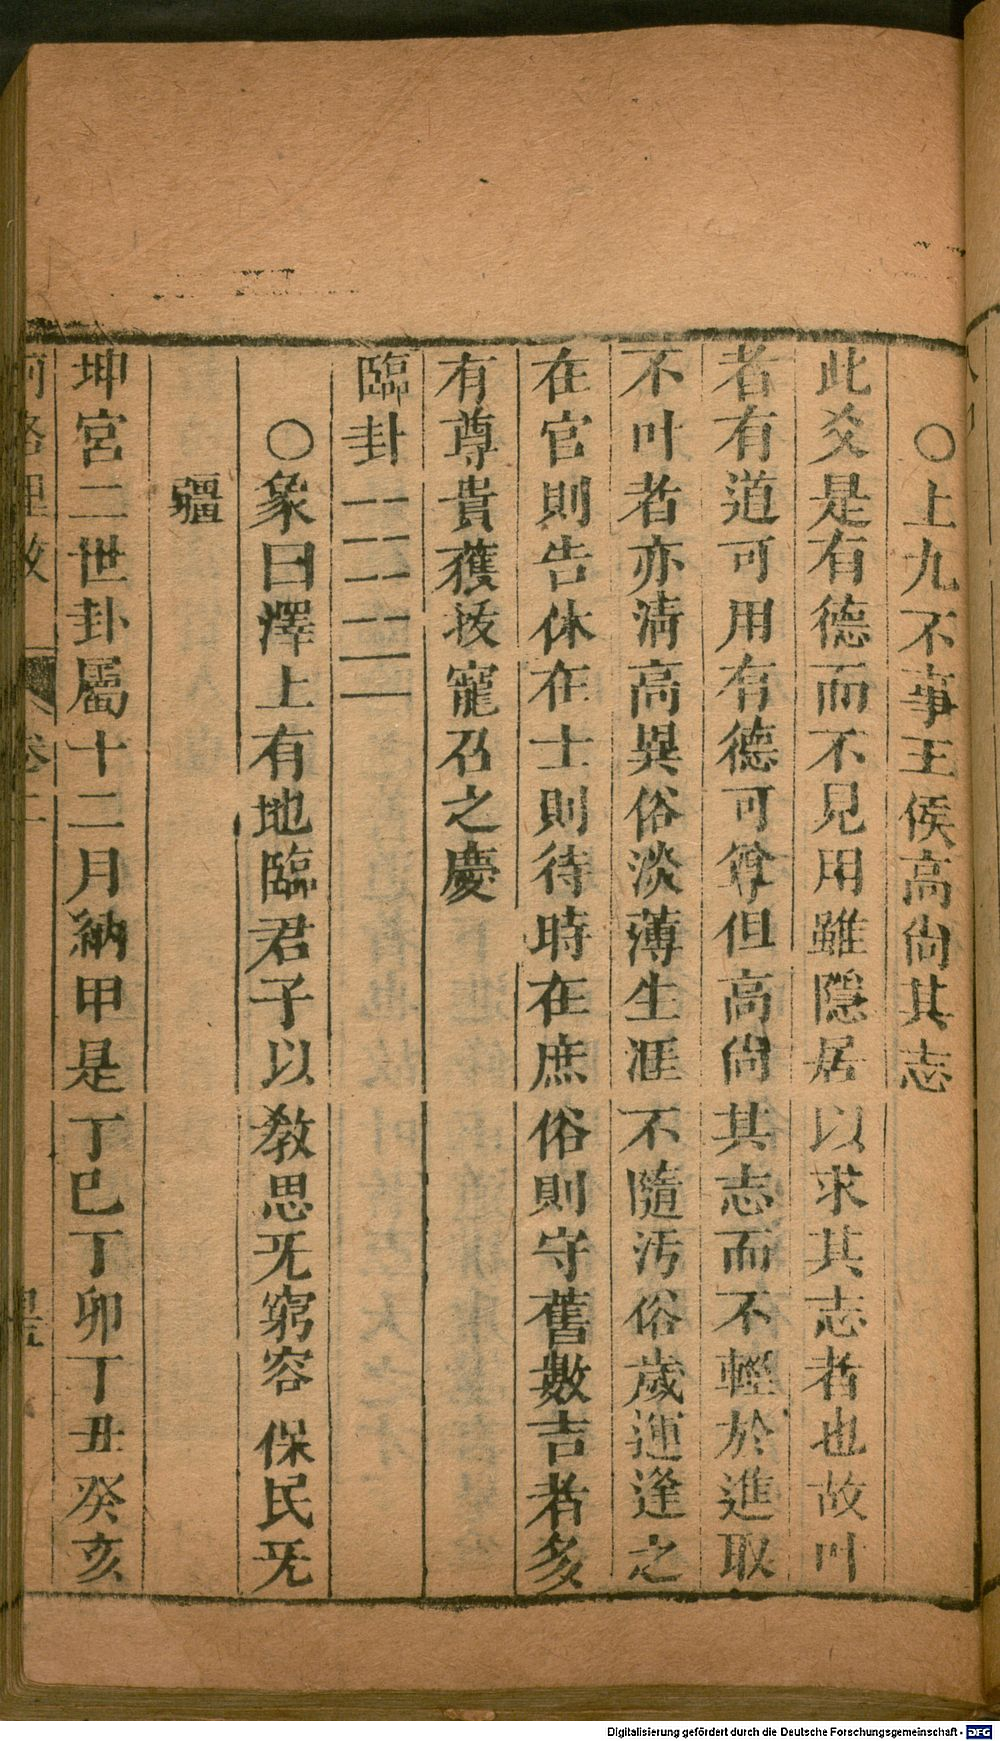 ○上九不事王侯高尙其志
此爻是有德而不見用雖隱居以求其志者也故叶
者有道可用有德可尊但高尙其志而不輕於進取
不叶者亦淸高異俗淡薄生涯不隨汚俗歲運逢之
在官則告休在士則待時在庶俗則守舊數吉者多
有尊貴獲拔寵召之慶
臨卦
○象曰澤上有地臨君子以敎思无窮容保民无
疆
坤宮二世卦屬十二月納甲是丁巳丁卯丁丑癸亥
河洛理數 卷二
Digitalisierung gefördert durch die Deutsche Forschungsgemeinschaft - DFG